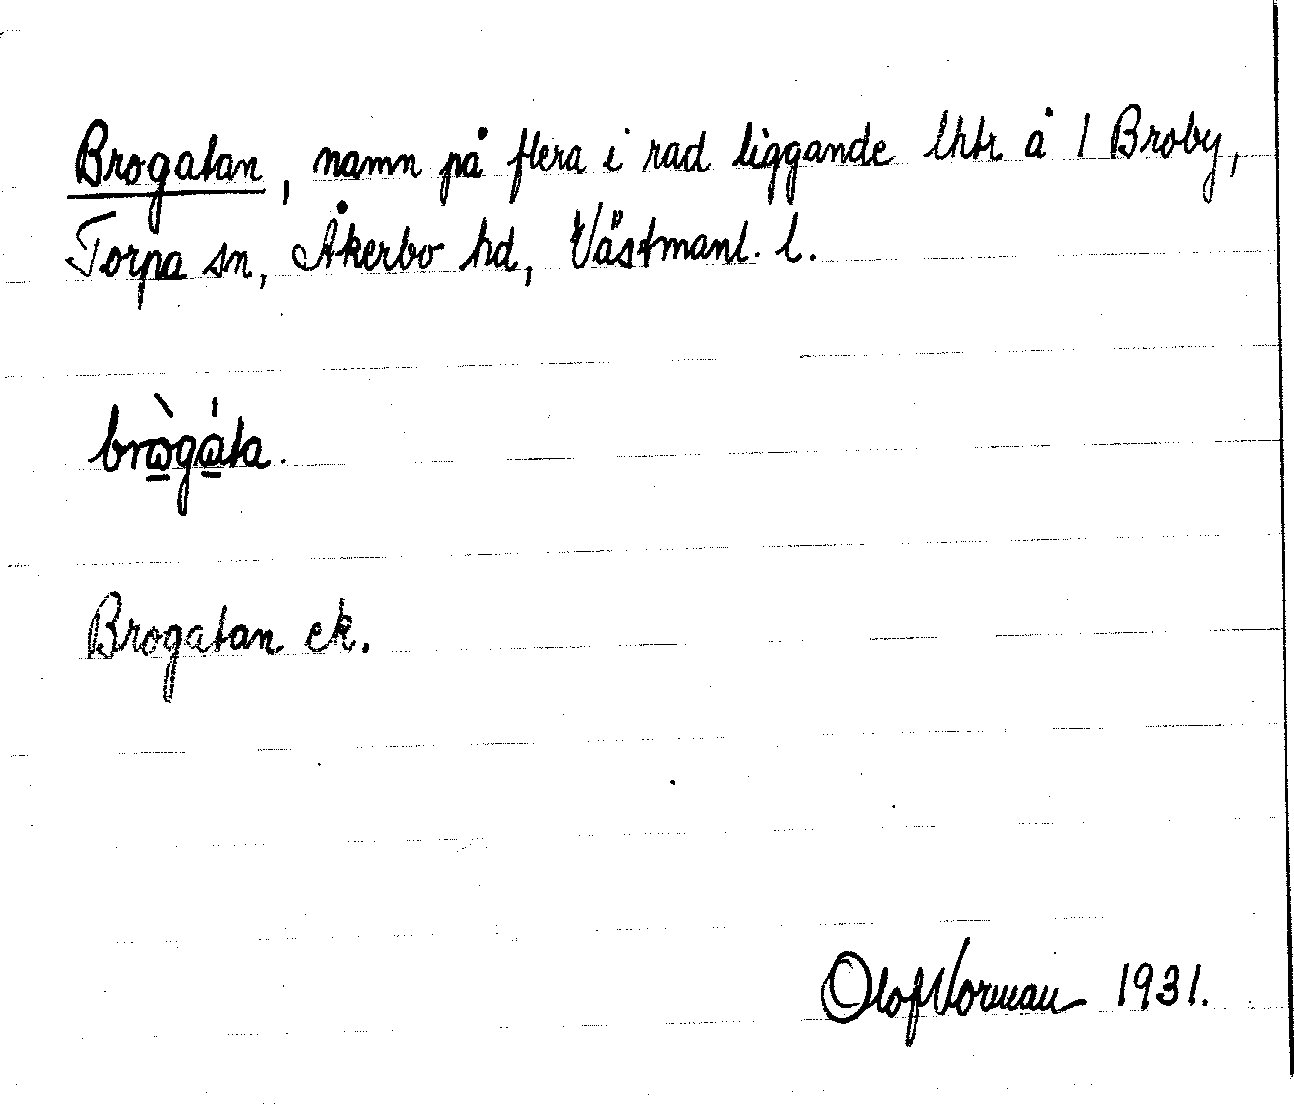 Brogatan, namn på flera i rad liggande lhtr å 1 Broby,
Torpa sn, Åkerbo hd, Västmanl. l.
brὼ̲gά̲ta.
Brogatan ek.
Olof Norman 1931.